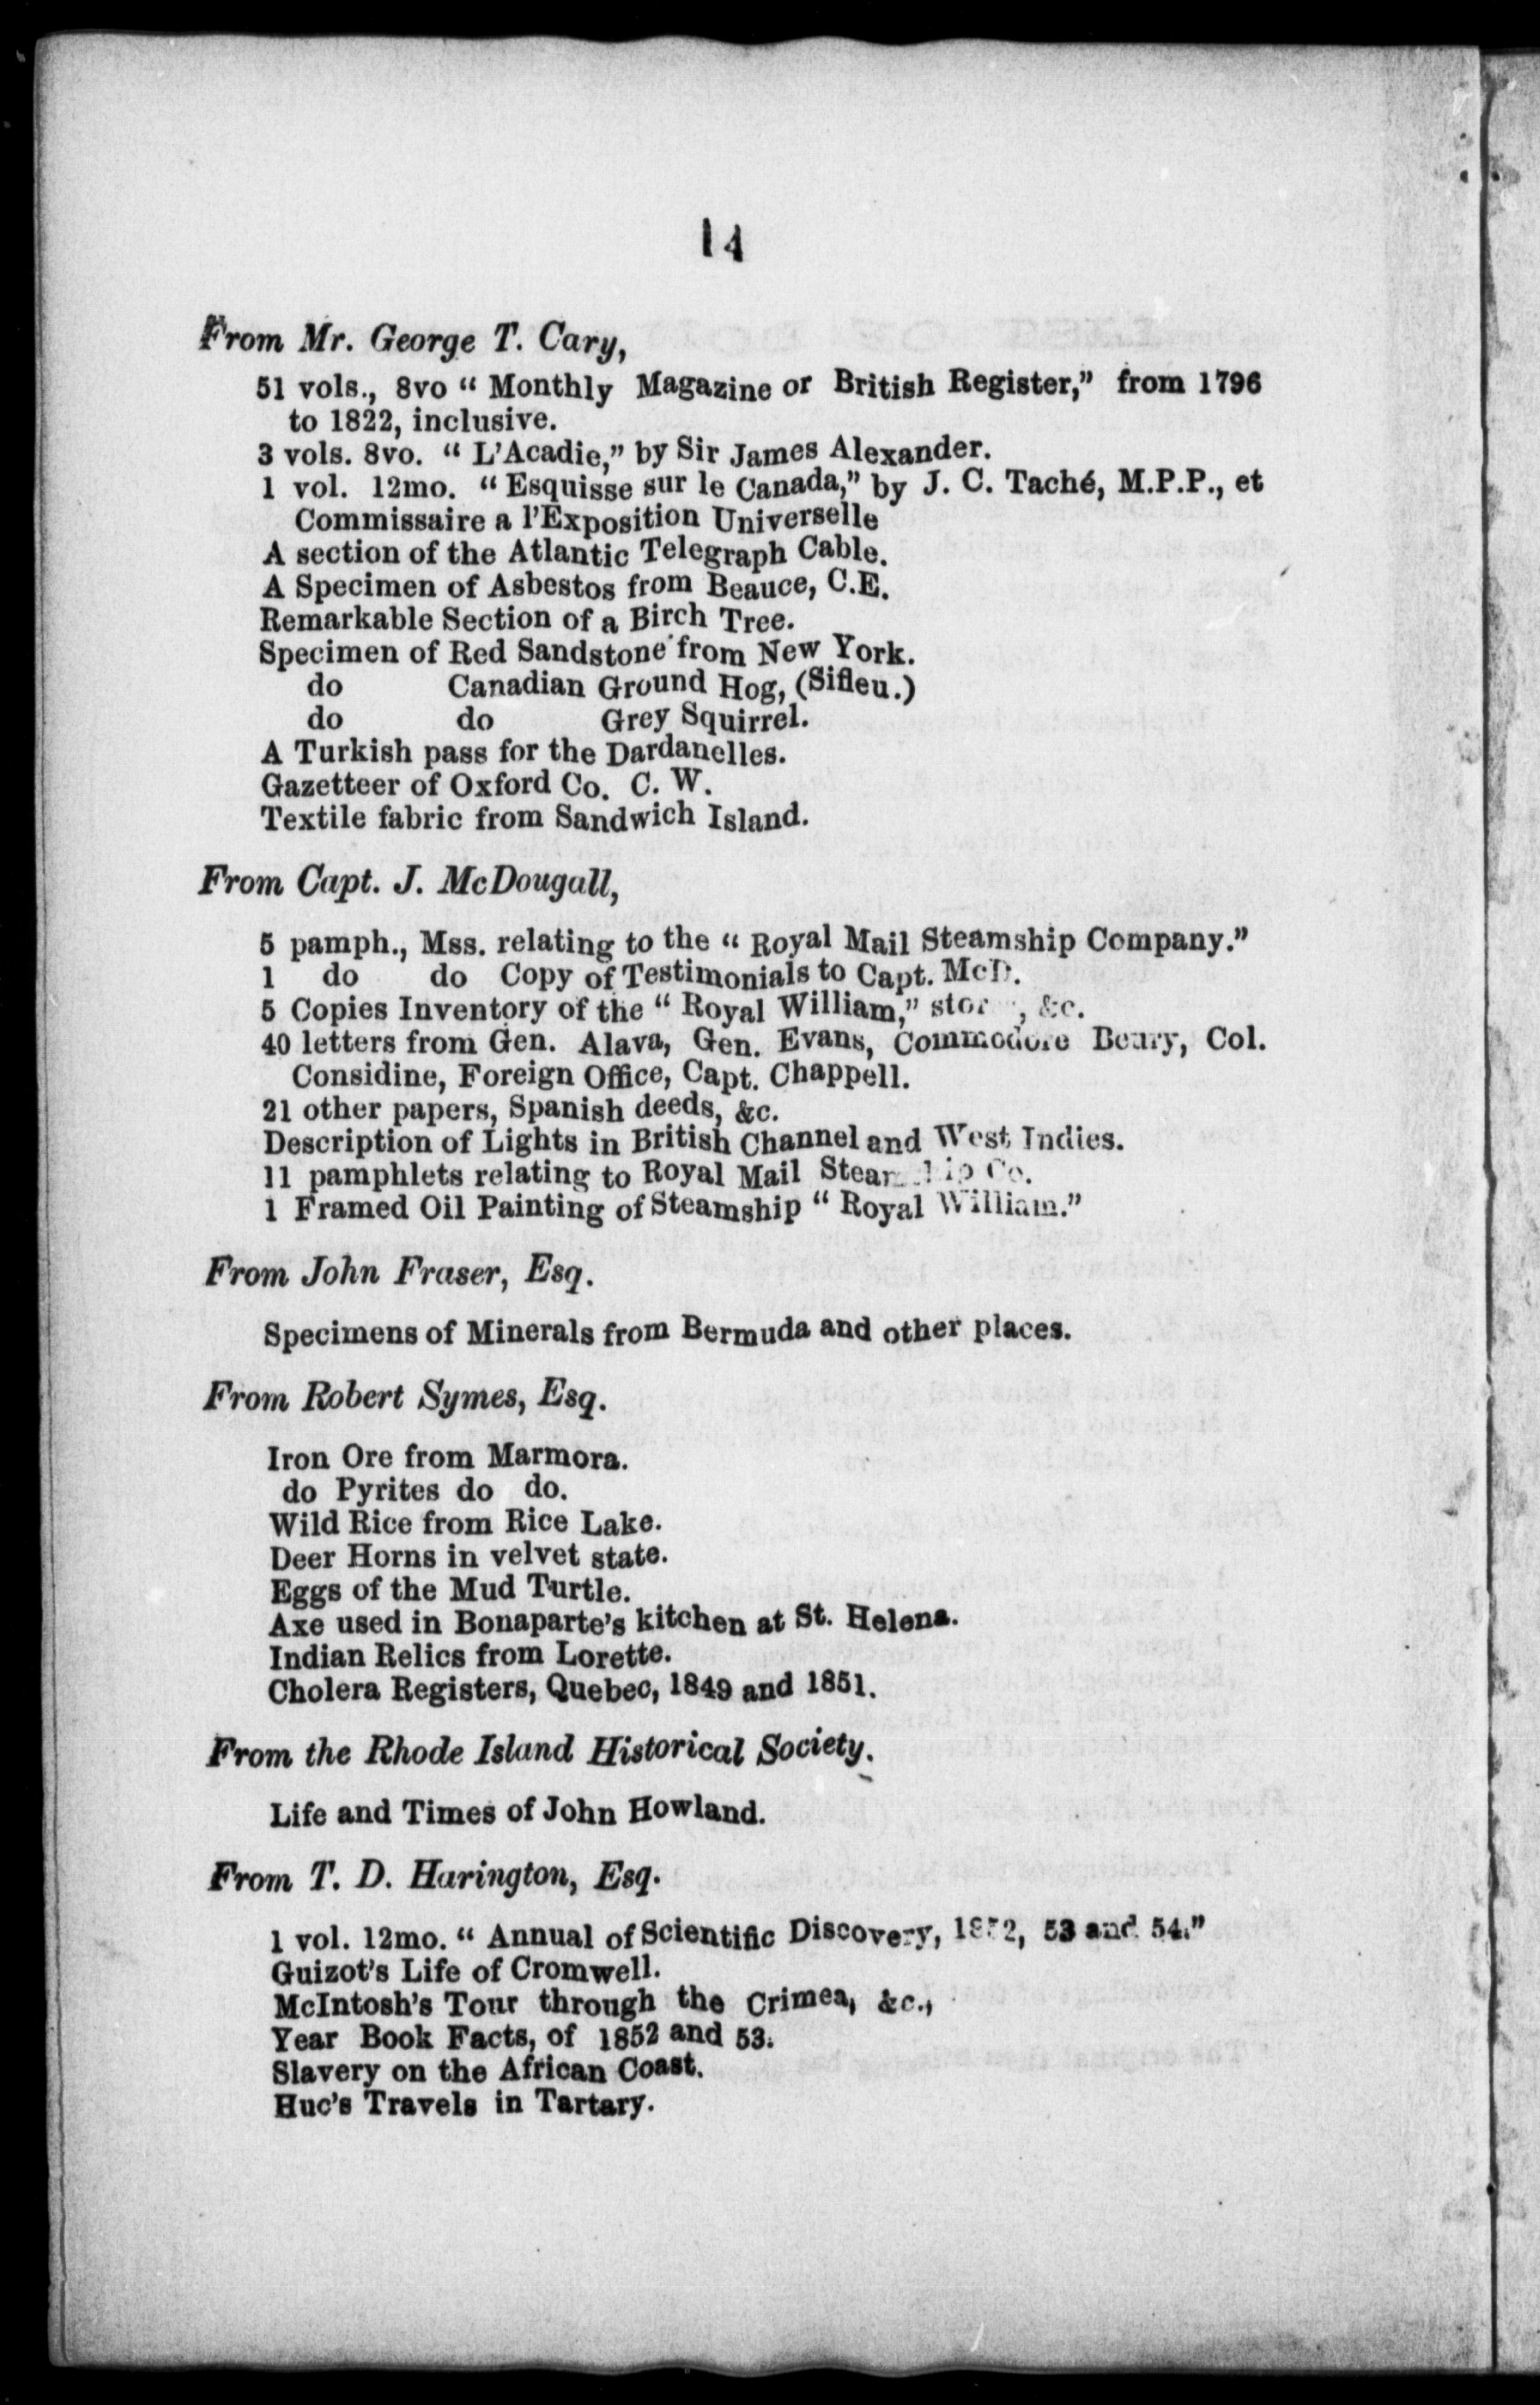 14
From Mr. George T. Cary,
51 vols., 8vo “ Monthly Magazine or British Register,” from 1796
to 1822, inclusive.
3 vols. 8vo. “ L’Acadie,” by Sir James Alexander.
1 vol. 12mo. “ Esquisse sur le Canada,” by J. C. Taché, M.P.P., et
Commissaire a l’Exposition Universelle
A section of the Atlantic Telegraph Cable.
A Specimen of Asbestos from Beauce, C.E.
Remarkable Section of a Birch Tree.
Specimen of Red Sandstone from New York.
do Canadian Ground Hog, (Sifleu.)
do do Grey Squirrel.
A Turkish pass for the Dardanelles.
Gazetteer of Oxford Co. C. W.
Textile fabric from Sandwich Island.
From Capt. J. McDougall,
5 pamph., Mss. relating to the “ Royal Mail Steamship Company.”
1 do do Copy of Testimonials to Capt. McD.
5 Copies Inventory of the “ Royal William,” &c.
40 letters from Gen. Alava, Gen. Evans, Commodore Col.
Considine, Foreign Office, Capt. Chappell.
21 other papers, Spanish deeds, &c.
Description of Lights in British Channel and West Indies.
11 pamphlets relating to Royal Mail Steamship Co.
1 Framed Oil Painting of Steamship “ Royal William.”
From John Fraser, Esq.
Specimens of Minerals from Bermuda and other places.
From Robert Symes, Esq.
Iron Ore from Marmora.
do Pyrites do do.
Wild Rice from Rice Lake.
Deer Horns in velvet state.
Eggs of the Mud Turtle.
Axe used in Bonaparte’s kitchen at St. Helena.
Indian Relics from Lorette.
Cholera Registers, Quebec, 1849 and 1851.
From the Rhode Island Historical Society.
Life and Times of John Howland.
From T. D. Harington, Esq.
1 vol. 12mo. “ Annual of Scientific Discovery, 1852, 53 and 54.”
Guizot’s Life of Cromwell.
McIntosh’s Tour through the Crimea, &c.,
Year Book Facts, of 1852 and 53.
Slavery on the African Coast.
Huc’s Travels in Tartary.